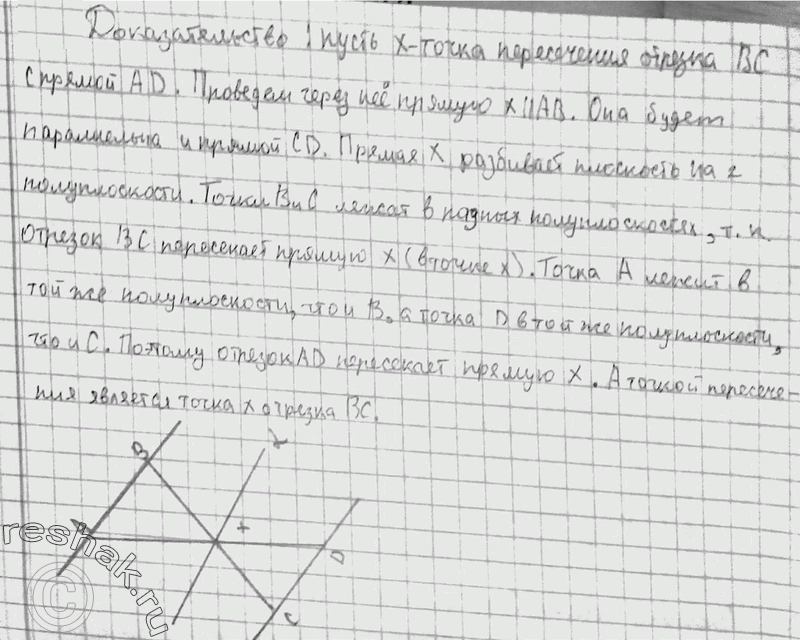 Доказательство: пусть X-точка пересечения отрезка BC
с прямой AD. Проведем через неё прямую x||AB. Она будет
параллельна и прямой CD. Прямая X разбивает плоскость на 2
полуплоскости. Точки B и C лежат в разных полуплоскостях, т.к.
отрезок BC пересекает прямую x (в точке x). Точка A лежит в
той же полуплоскости, что и B, а точка D в той же полуплоскости,
что и C. Потому отрезок AD пересекает прямую X. А точкой пересече-
ния является точка x отрезка BC.
B
x
A
x
D
C
reshak.ru
©